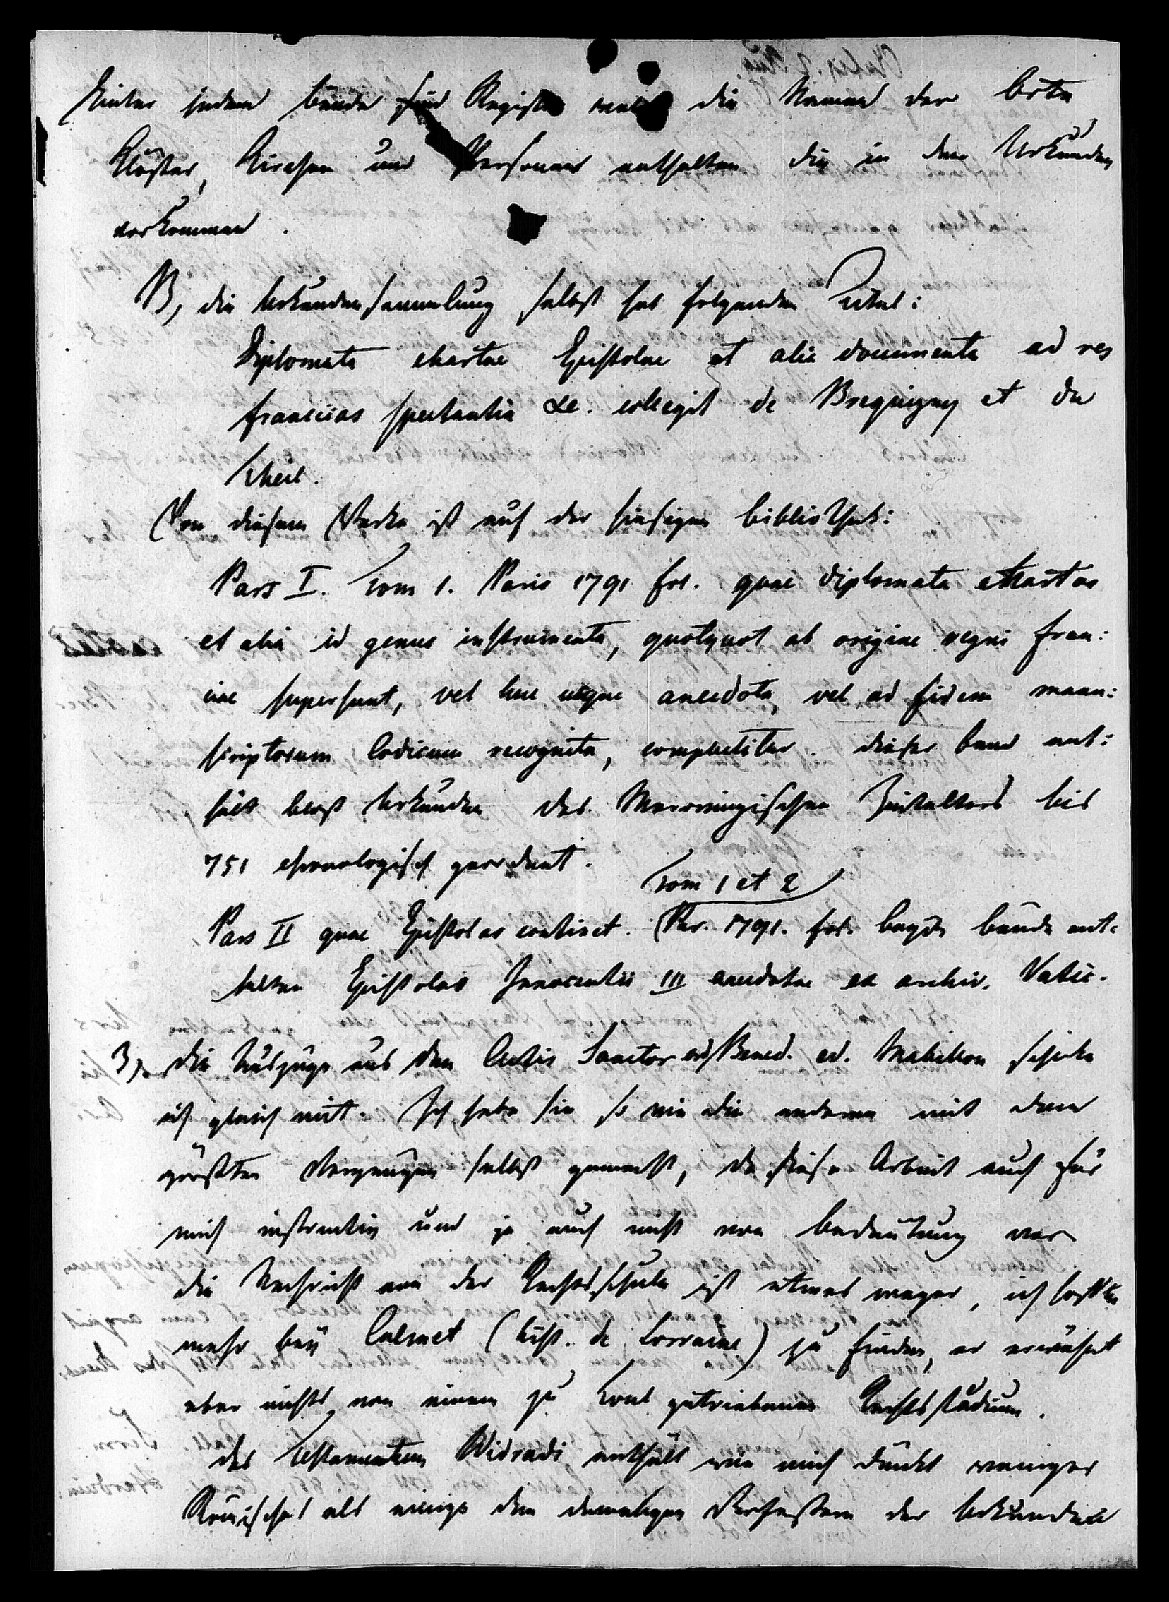 Hinter jedem bande sind Register welche die Namen der Orte
Klöster, Kirchen und Personen enthalten die in den Urkunden
vorkommen.
B, die Urkundensammlung selbst hat folgenden Titel:
Diplomata chartae Epistolae et alia documenta ad res
francicas spectantia &c. collegit de Brequigny et du
Theil.
Von diesem Werke ist auf der hiesigen bibliothek:
Pars I. Tom 1. Paris 1791 fol. quae diplomata chartas
et alia id genus instrumenta, quotquot ab origine regni fran:
ciae supersunt, vel huc usque anecdota, vel ad fidem manu:
scriptorum Codicum recognita, complectitur. dieser band ent:
hält blos Urkunden des Merovingischen Zeitalters bis
751 chronologisch geordnet.
Tom 1 et 2
Pars II quae Epistolas continet. Par. 1791. fol. beyde bände ent:
halten Epistolas Innocentii III anecdotae ex archiv. Vatic.
3, die Auszüge aus den Actis Sanctor ord Bened. ed. Mabillon schicke
ich gleich mit. Ich habe sie so wie die anderen mit dem
größten Vergnügen selbst gemacht, da diese Arbeit auch für
mich instructiv und ja auch nicht von bedeutung war
die Nachricht von der Rechtsschule ist etwas mager, ich hoffte
mehr bey Calmet (hist. de Lorraine) zu finden, er erwähnt
aber nichts von einem zu Toul getriebenen Rechtsstudium.
das Testamentum Widradi enthält wie mich dünkt weniger
Römisches als einige den damaligen Verfassern der Urkunden